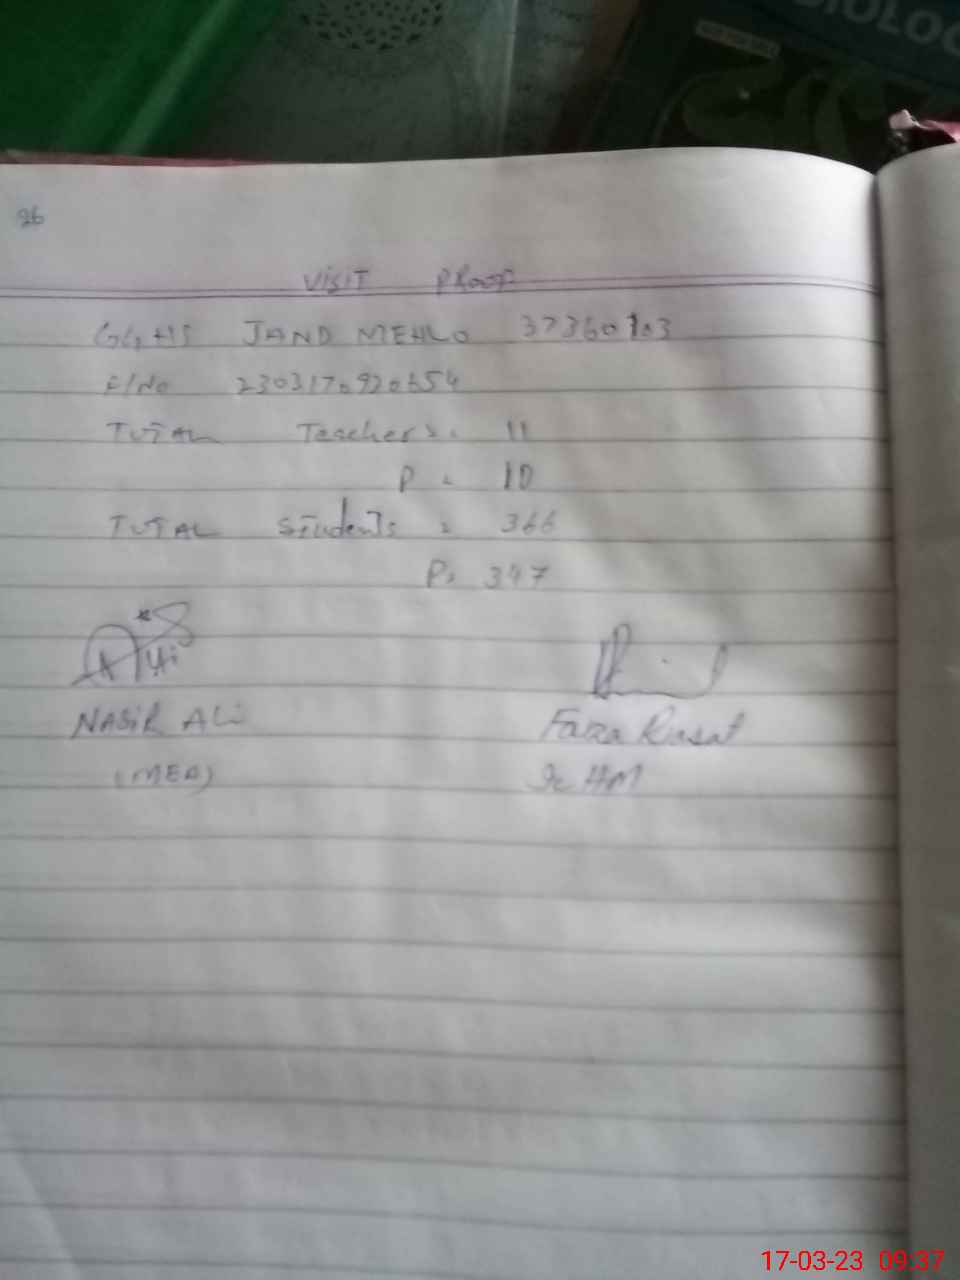 BIOLOG
26
VISIT PROOF
GGHS JAND MEHLO 37360103
F/No 2303170920654
TOTAL Teachers. 11
P = 10
TOTAL Students = 366
P = 347
NASIR ALi
(MEA)
Faiza Riasat
Ic HM
17-03-23 09:37